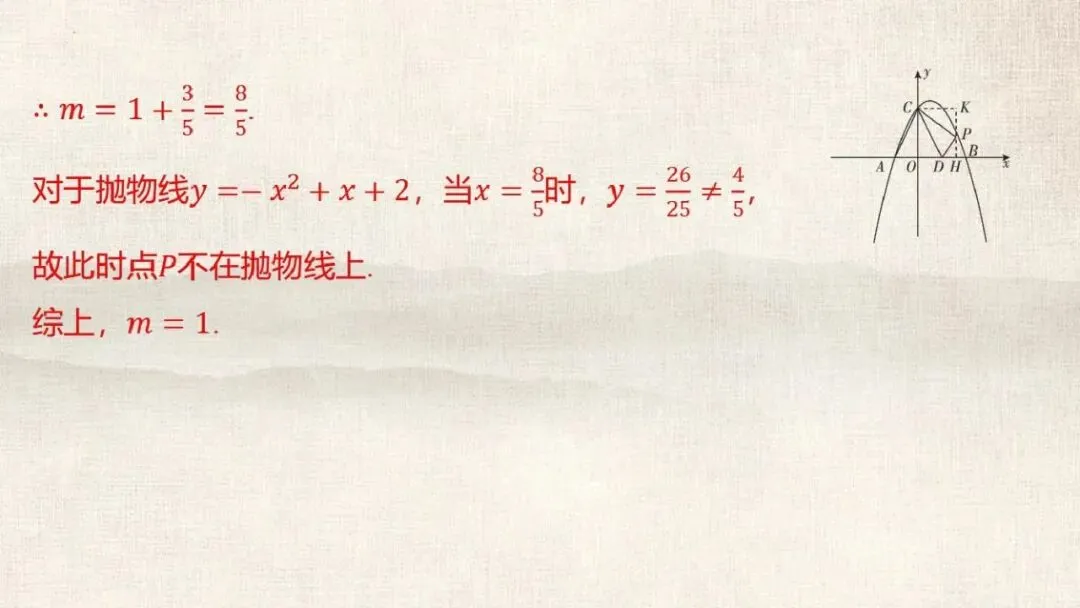 ∴ m = 1 + 3/5 = 8/5.
对于抛物线y =− x² + x + 2，当x = 8/5时，y = 26/25 ≠ 4/5，
故此时点P不在抛物线上.
综上，m = 1.
y
C K
P
A O D H B x